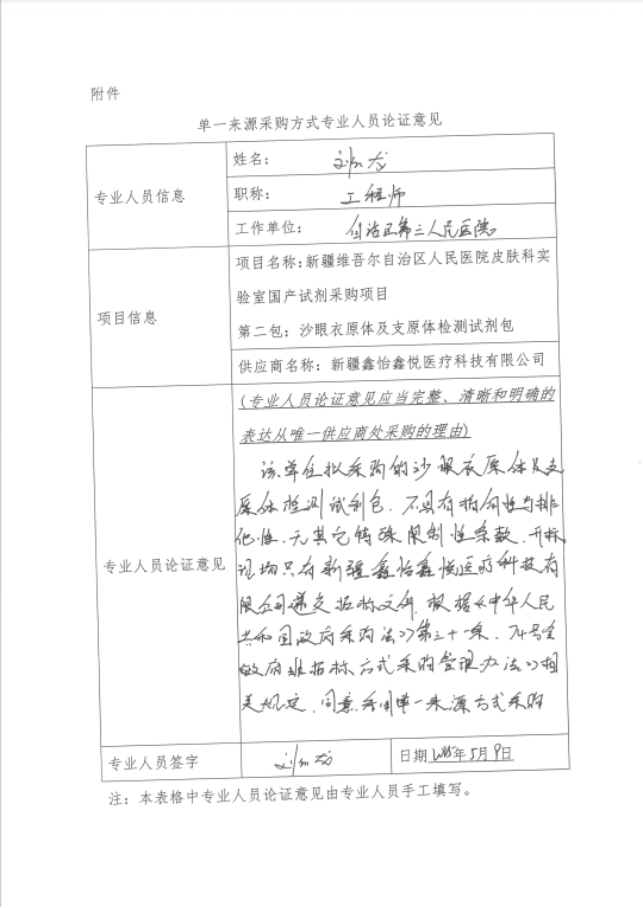 附件
单一来源采购方式专业人员论证意见
专业人员信息
姓名：
职称：
工程师
工作单位：
自治区第三人民医院
项目信息
项目名称：新疆维吾尔自治区人民医院皮肤科实
验室国产试剂采购项目
第二包：沙眼衣原体及支原体检测试剂包
供应商名称：新疆鑫怡鑫悦医疗科技有限公司
专业人员论证意见
(专业人员论证意见应当完整、清晰和明确的
表达从唯一供应商处采购的理由)
该单位拟采购的沙眼衣原体及支
原体检测试剂包，不具有指向性与排
他性，无其它特殊限制性条款，开标
现均只有新疆鑫怡鑫悦医疗科技有
限公司递交招标文件，根据《中华人民
共和国政府采购法》第三十一条，74号令
政府非招标方式采购管理办法》相
关规定，同意采用单一来源方式采购
专业人员签字
日期
年5月9日
注：本表格中专业人员论证意见由专业人员手工填写。